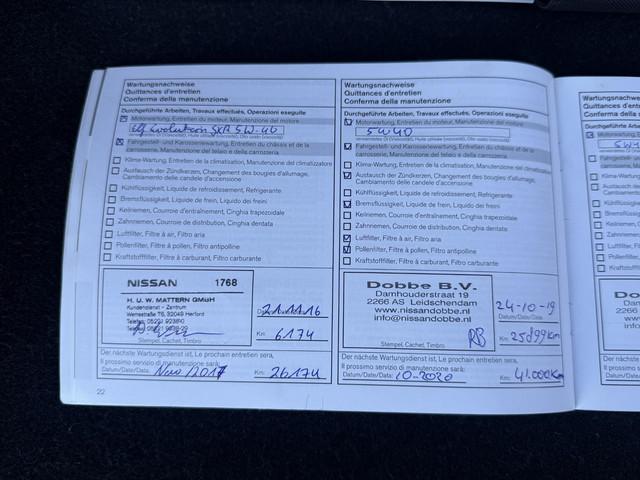 Wartungsnachweise
Quittances d'entretien
Conferma della manutenzione
Durchgeführte Arbeiten, Travaux effectués, Operazioni eseguite
Motorwartung, Entretien du moteur, Manutenzione del motore
Evolution SXR 5W-40
Fahrgestell- und Karosseriewartung, Entretien du châssis et de la
carrosserie, Manutenzione del telaio e della carrozzeria
Klima-Wartung, Entretien de la climatisation, Manutenzione del climatizzatore
Austausch der Zündkerzen, Changement des bougies d'allumage,
Cambiamento delle candele d'accensione
Kühlflüssigkeit, Liquide de refroidissement, Refrigerante
Bremsflüssigkeit, Liquide de frein, Liquido dei freini
Keilriemen, Courroie d'entraînement, Cinghia trapezoidale
Zahnriemen, Courroie de distribution, Cinghia dentata
Luftfilter, Filtre à air, Filtro aria
Pollenfilter, Filtre à pollen, Filtro antipolline
Kraftstofffilter, Filtre à carburant, Filtro carburante
NISSAN 1768
H. U. W. MATTERN GMBH
Kundendienst - Zentrum
Werrestraße 75, 32049 Herford
Stempel, Cachet, Timbro
21.11.16
Datum/Date/Data
Km: 6174
Der nächste Wartungsdienst ist, Le prochain entretien sera,
Il prossimo servizio di manutenzione sarà:
Datum/Date/Data: Nov/2017 Km: 26174
22
Wartungsnachweise
Quittances d'entretien
Conferma della manutenzione
Durchgeführte Arbeiten, Travaux effectués, Operazioni eseguite
Motorwartung, Entretien du moteur, Manutenzione del motore
5W40
Fahrgestell- und Karosseriewartung, Entretien du châssis et de la
carrosserie, Manutenzione del telaio e della carrozzeria
Klima-Wartung, Entretien de la climatisation, Manutenzione del climatizzatore
Austausch der Zündkerzen, Changement des bougies d'allumage,
Cambiamento delle candele d'accensione
Kühlflüssigkeit, Liquide de refroidissement, Refrigerante
Bremsflüssigkeit, Liquide de frein, Liquido dei freini
Keilriemen, Courroie d'entraînement, Cinghia trapezoidale
Zahnriemen, Courroie de distribution, Cinghia dentata
Luftfilter, Filtre à air, Filtro aria
Pollenfilter, Filtre à pollen, Filtro antipolline
Kraftstofffilter, Filtre à carburant, Filtro carburante
Dobbe B.V.
Damhouderstraat 19
2266 AS Leidschendam
www.nissandobbe.nl
info@nissandobbe.nl
RB
Stempel, Cachet, Timbro
24-10-19
Datum/Date/Data
Km: 25899km
Der nächste Wartungsdienst ist, Le prochain entretien sera,
Il prossimo servizio di manutenzione sarà:
Datum/Date/Data: 10-2020 Km: 41.000Km